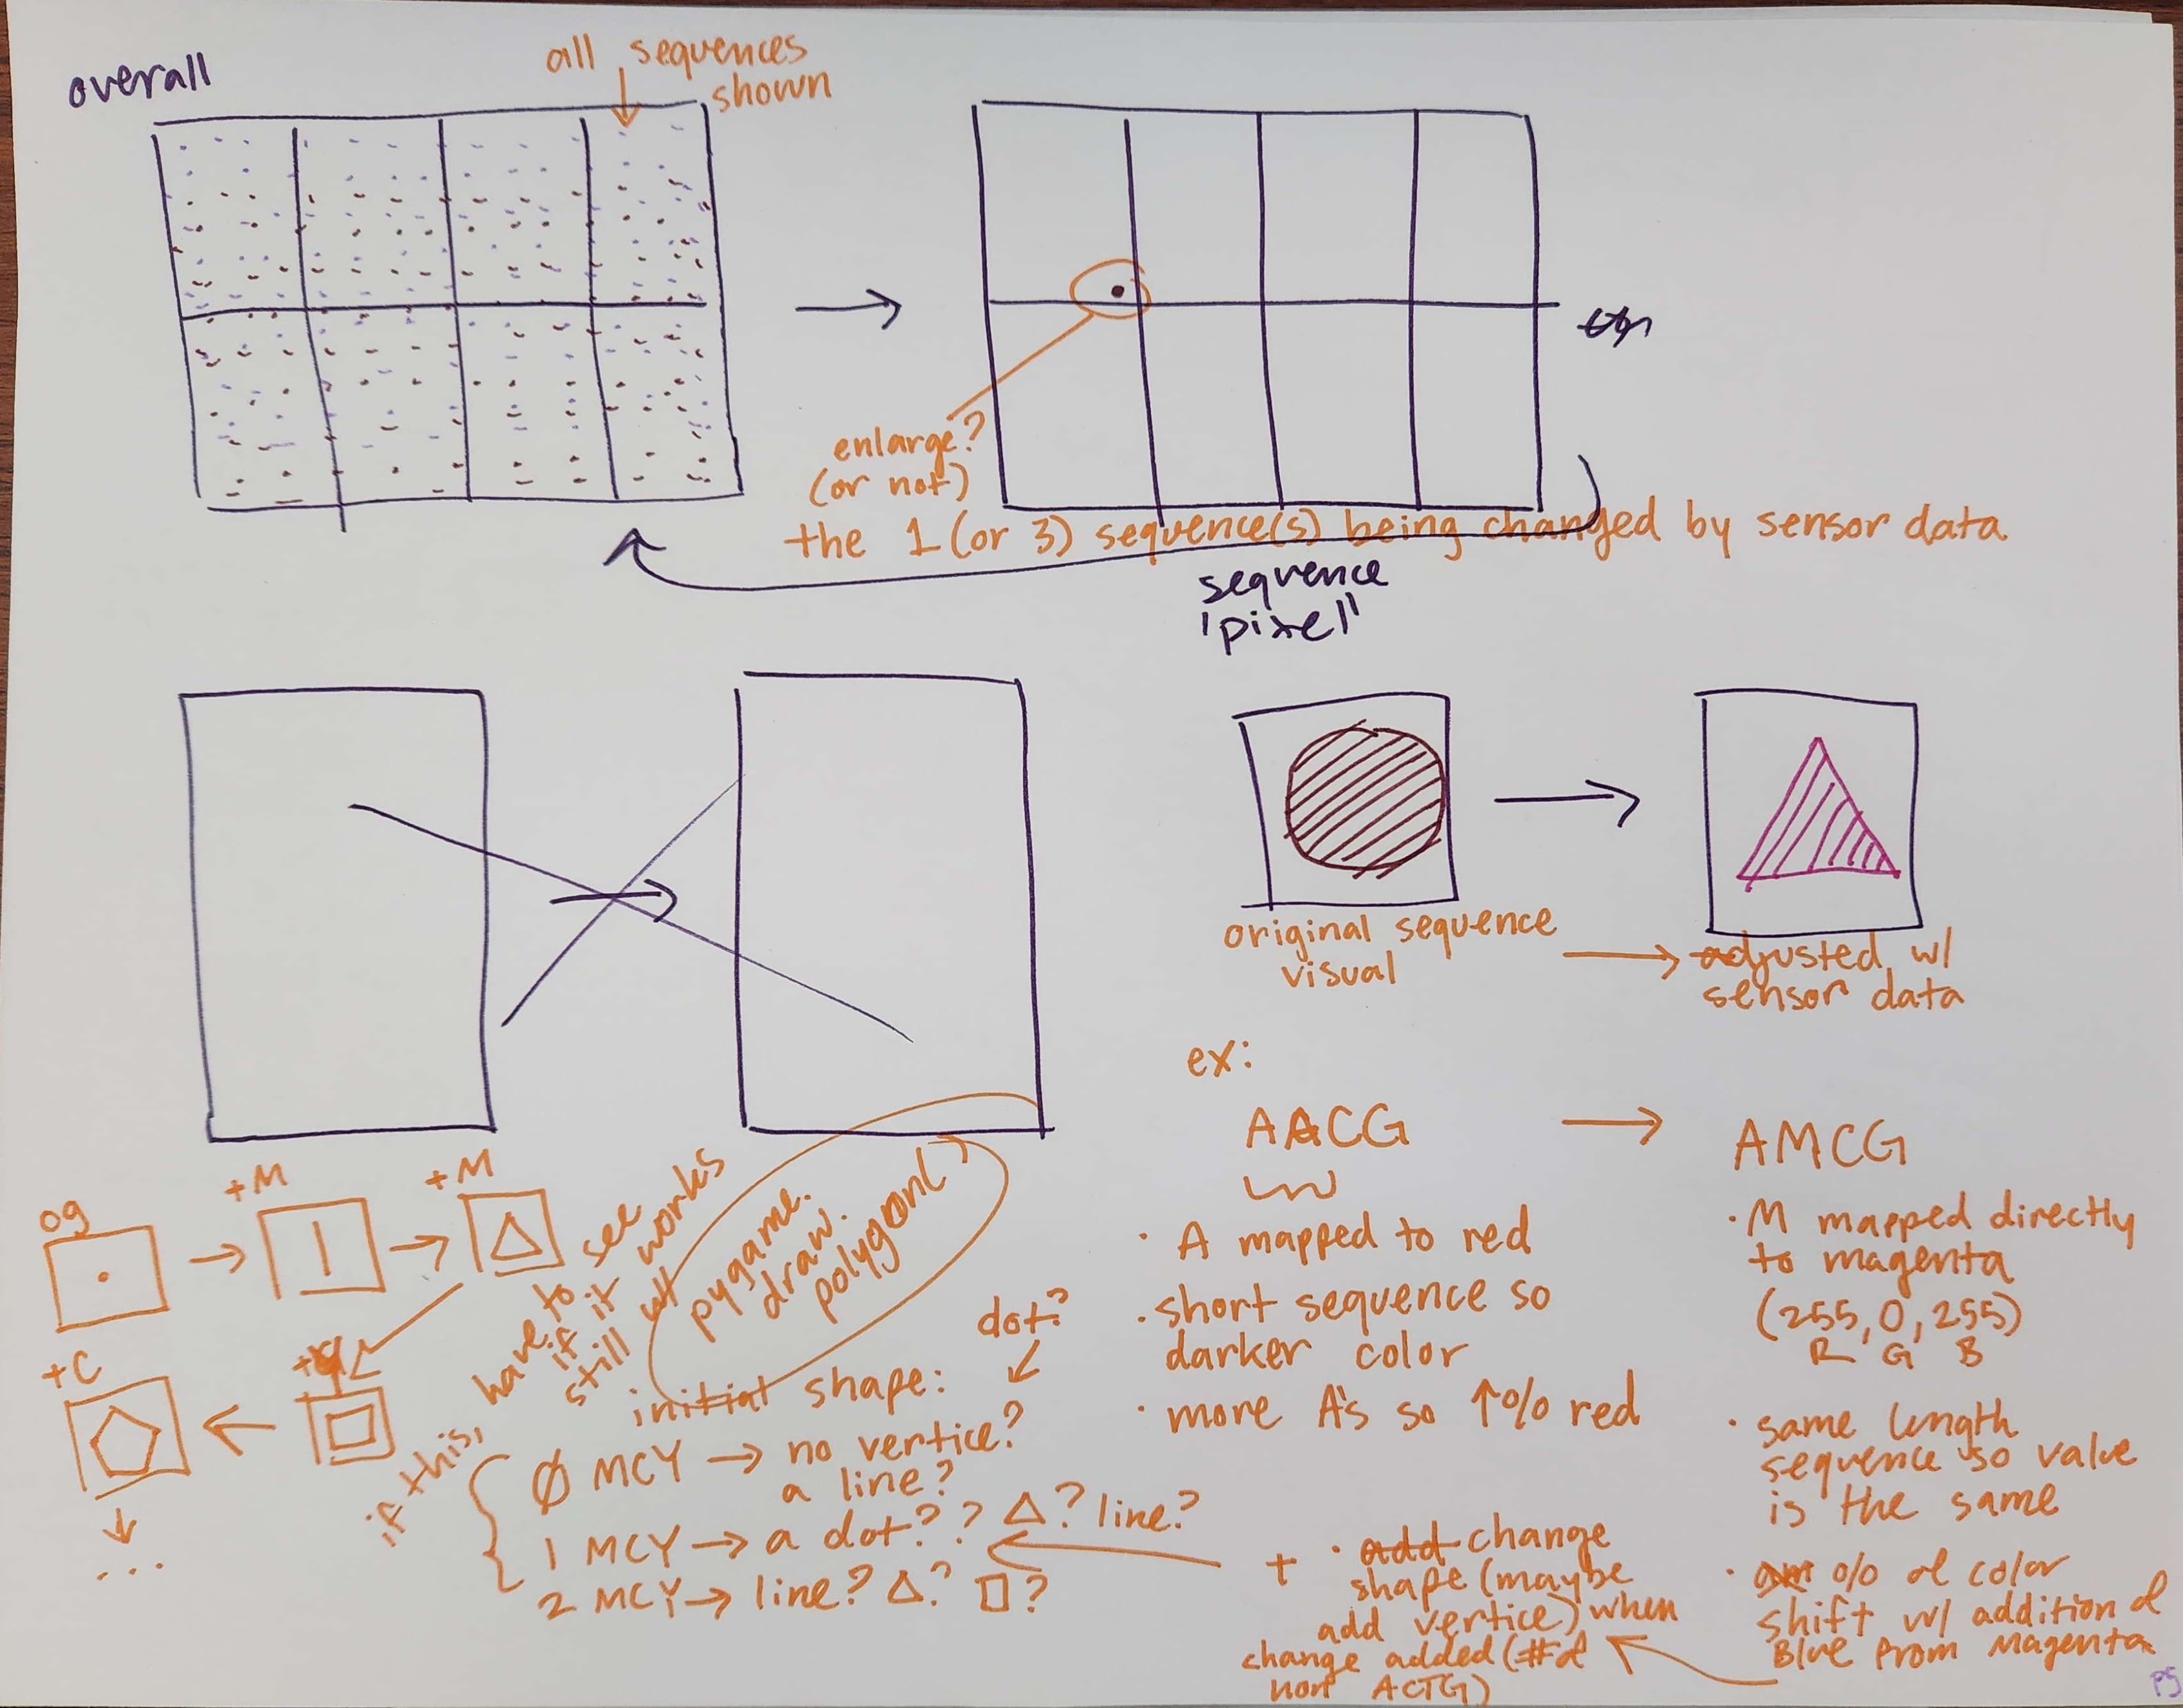 overall
all sequences
shown
enlarge?
(or not)
the 1 (or 3) sequence(s) being changed by sensor data
sequence
'pixel'
original sequence
visual
adjusted w/
sensor data
ex:
AACG
AMCG
· A mapped to red
· short sequence so
darker color
· more A's so ↑% red
· M mapped directly
to magenta
(255, 0, 255)
R G B
· same length
sequence so value
is the same
· % of color
shift w/ addition of
Blue from Magenta
+ · add change
shape (maybe
add vertice) when
change added (# of
non ACTG)
og
+M
+M
+C
...
if this, have to see
if it works
still w/
pygame.
draw.
polygon()
dot?
initial shape:
∅ MCY → no vertice?
a line?
1 MCY → a dot?? △? line?
2 MCY → line? △? □?